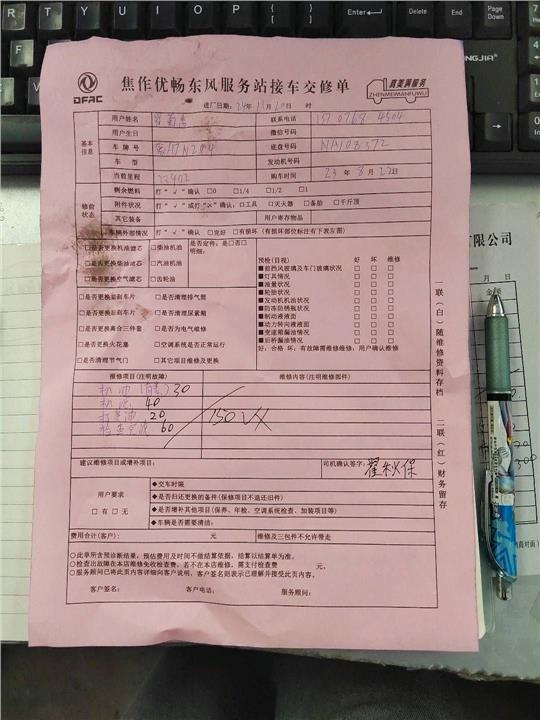 DFAC
焦作优畅东风服务站接车交修单
真美满服务
ZHENMEIMANFUWU
进厂日期: 24年 11月 10日 时
用户姓名 联系电话
用户生日 微信号码
基本信息
车牌号 底盘号码 NA108372
车型 发动机号码
当前里程 22402 购车时间 23年8月22日
修前状态
剩余燃料 打“√”确认 □0 □1/4 □1/2 □1
附件状况 打“√”或打“×”确认:□工具 □灭火器 □备胎 □千斤顶
其它装备 用户寄存物品
车辆外部情况 打“√”确认 □完好 □有损坏(有损坏部位标注有下表左图)
□是否更换机油滤芯 □柴油机油 是否定件:是□否□
明细:
□是否更换柴油滤芯 □汽油机油
□是否更换空气滤芯 □齿轮油
预检(目视) 好 坏 维修
■前挡风玻璃及车门玻璃状况 □ □ □
■灯具情况 □ □ □
■油量状况 □ □ □
■轮胎状况 □ □ □
■发动机机油状况 □ □ □
■防冻防锈瓶状 □ □ □
■制动液液面 □ □ □
■动力转向液液面 □ □ □
■变速箱漏油情况 □ □ □
■后桥漏油情况 □ □ □
好:合格 坏:有故障需维修维修:用户确认维修
□是否更换前刹车片 □是否清理排气筒
□是否更换后刹车片 □是否清理尿素箱
□是否更换离合三件套 □是否为电气维修
□是否更换火花塞 □空调系统是否正常运行
□是否清理节气门 □其它项目维修及更换
报修项目(注明故障) 维修内容(注明维修部件)
机油 30
机滤 40
20
60
150
建议维修项目或增补项目:
司机确认签字: 翟秋保
用户要求
□有 □无
◆交车时限
◆是否归还更换的备件(保修项目不退还旧件)
◆是否增补其他项目(保养、年检、空调系统检查、加装项目等)
◆车辆是否需要清洁:
费用合计(客户): 元 维修及三包件不允许带走
○此单所含预诊断结果,预估费用及时间不做结算依据,结算以结算单为准。
○检查出故障在本站维修免收检查费,若不在本站维修,需支付检查费 元。
○服务顾问已将此页内容详细向客户说明,客户签名则表示已理解并接受此页内容。
客户签名: 客户电话: 服务顾问:
一联(白)随维修资料存档
二联(红)财务留存
有限公司
月 日
金额
Enter
Delete
End
Page
Down